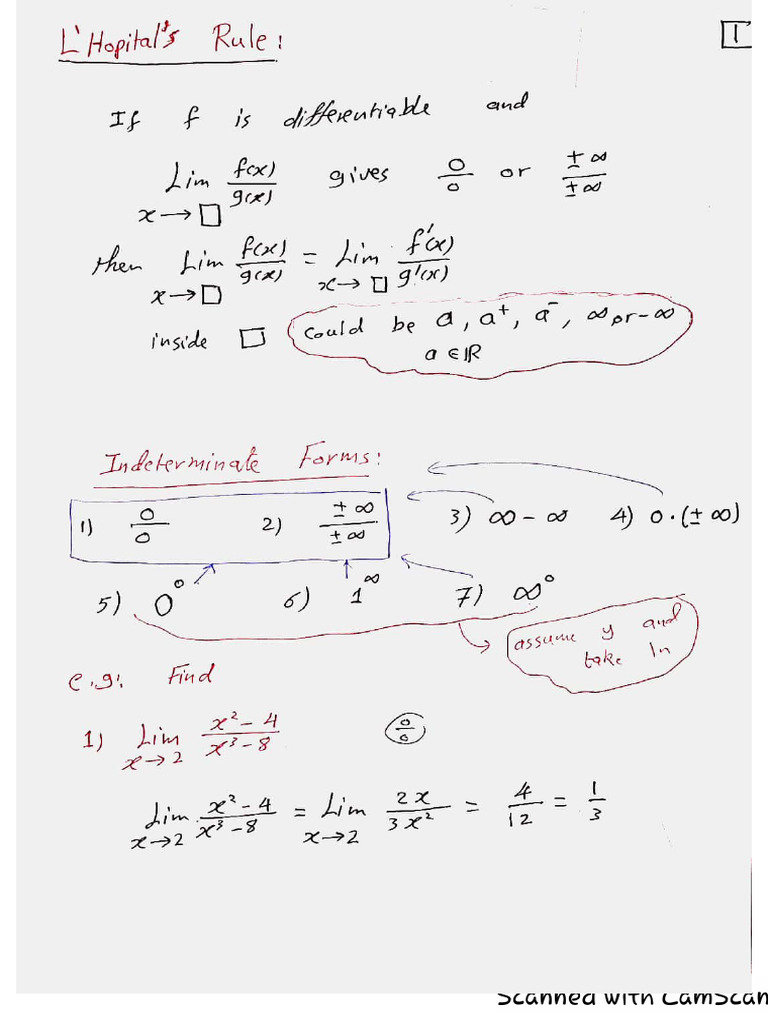 L'Hopital's Rule:
1
If f is differentiable and
Lim f(x)/g(x) gives 0/0 or ±∞/±∞
x→□
then Lim f(x)/g(x) = Lim f'(x)/g'(x)
x→□ x→□
inside □ could be a, a⁺, a⁻, ∞ or -∞
a ∈ ℝ
Indeterminate Forms:
1) 0/0 2) ±∞/±∞ 3) ∞ - ∞ 4) 0·(±∞)
5) 0⁰ 6) 1^∞ 7) ∞⁰
assume y and
take ln
e.g: Find
1) Lim x²-4/x³-8 0/0
x→2
Lim x²-4/x³-8 = Lim 2x/3x² = 4/12 = 1/3
x→2 x→2
Scanned with CamScan